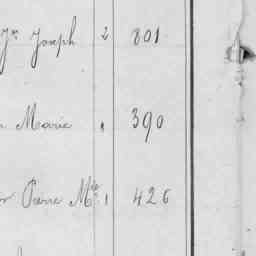 Jn Joseph 2 801
Marie 1 390
Pierre Mie 1 426